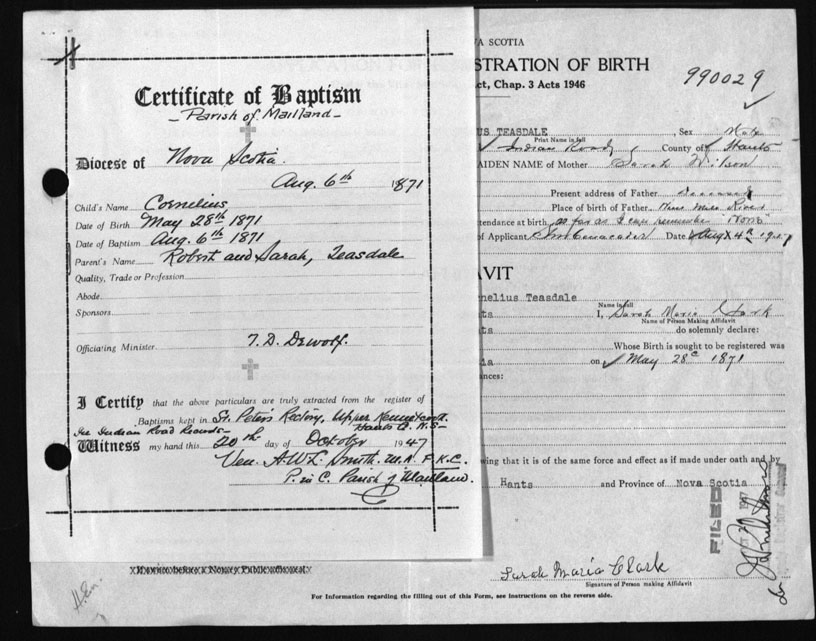 Certificate of Baptism
- Parish of Maitland -
Diocese of Nova Scotia.
Aug. 6th 1871
Child's Name Cornelius
Date of Birth May 28th 1871
Date of Baptism Aug. 6th 1871
Parent's Name Robert and Sarah, Teasdale
Quality, Trade or Profession
Abode
Sponsors
Officiating Minister T. D. Dewolf.
I Certify that the above particulars are truly extracted from the register of
Baptisms kept in St. Peter's Rectory, Upper Kennetcook
Hants Co. N.S-
See Indian Road Records-
Witness my hand this 20th day of October 1947
Ven. A.W.L. Smith. M.A. F.K.C.
P. in C. Parish of Maitland.
VA SCOTIA
STRATION OF BIRTH
ct, Chap. 3 Acts 1946
990029
US TEASDALE, Sex Male
Print Name in full
Indian Road, County of Hants
AIDEN NAME of Mother Sarah Wilson
Present address of Father deceased
Place of birth of Father Nine Mile River
ttendance at birth so far as I can remember "None"
of Applicant Date Aug 4th 19
VIT
rnelius Teasdale
Name in full
nts I, Sarah Maria Clark
Name of Person Making Affidavit
nts do solemnly declare:
Whose Birth is sought to be registered was
ia on May 28th 1871
ances:
wing that it is of the same force and effect as if made under oath and by
Hants and Province of Nova Scotia
FILED
Sarah Maria Clark
Signature of Person making Affidavit
H.En.
For Information regarding the filling out of this Form, see instructions on the reverse side.